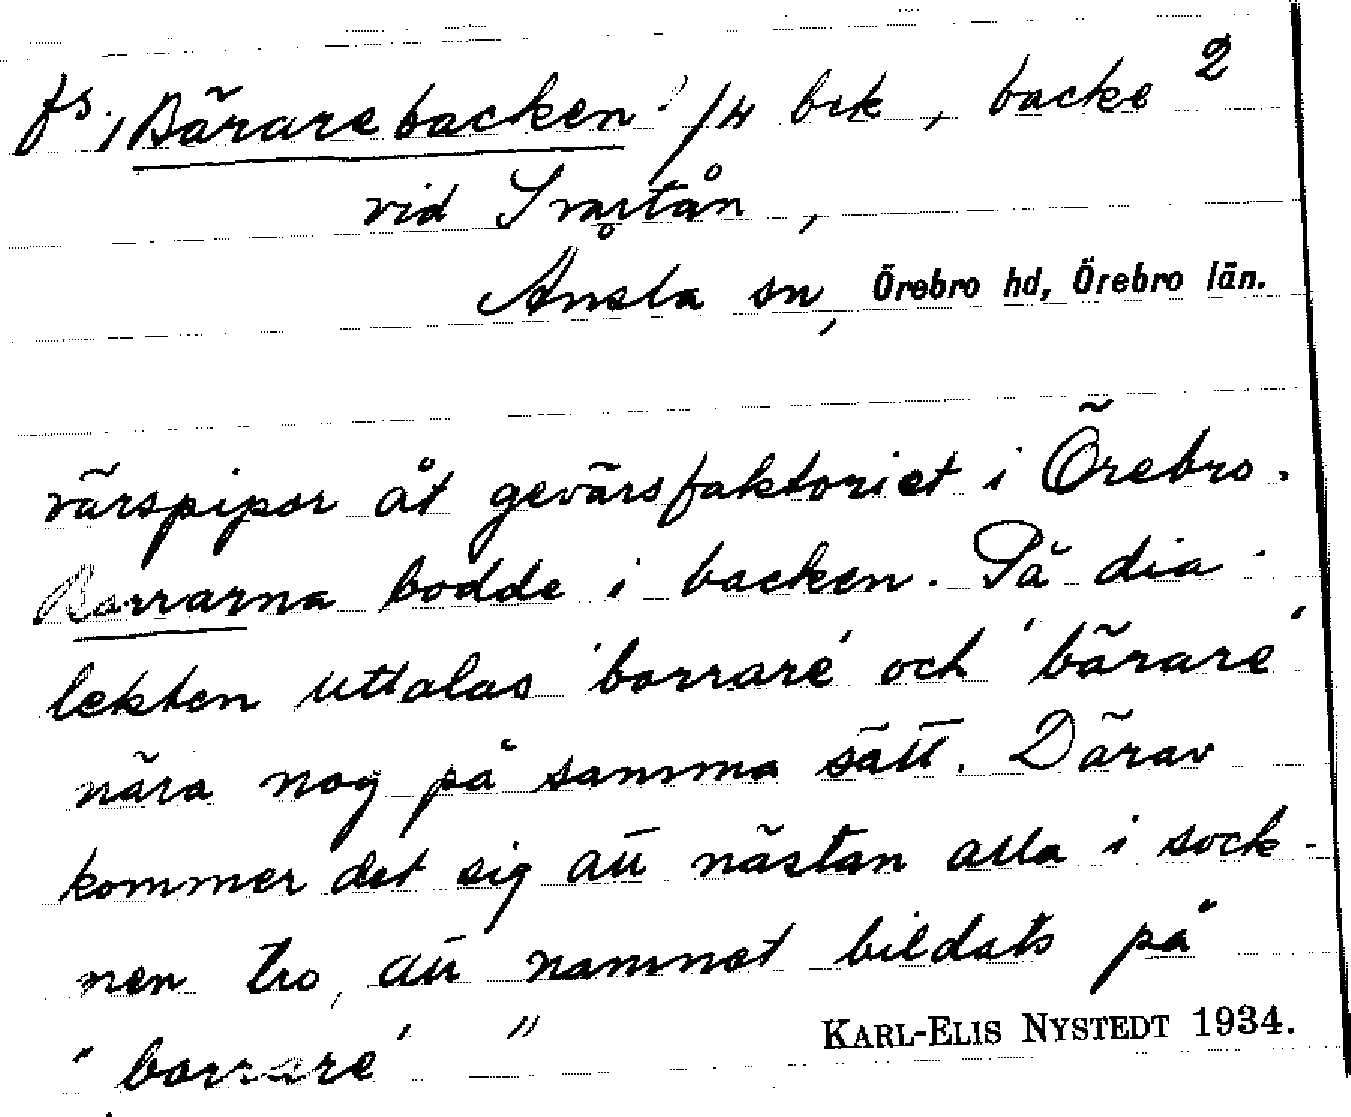 fs. Bärarebacken /4 brk, backe 2
vid Svartån,
Ånsta sn, Örebro hd, Örebro län.
värspipor åt gevärsfaktoriet i Örebro.
Borrarna bodde i backen. På dia-
lekten uttalas 'borrare' och 'bärare'
nära nog på samma sätt. Därav
kommer det sig att nästan alla i sock-
nen tro, att namnet bildats på
"borrare' "
KARL-ELIS NYSTEDT 1934.